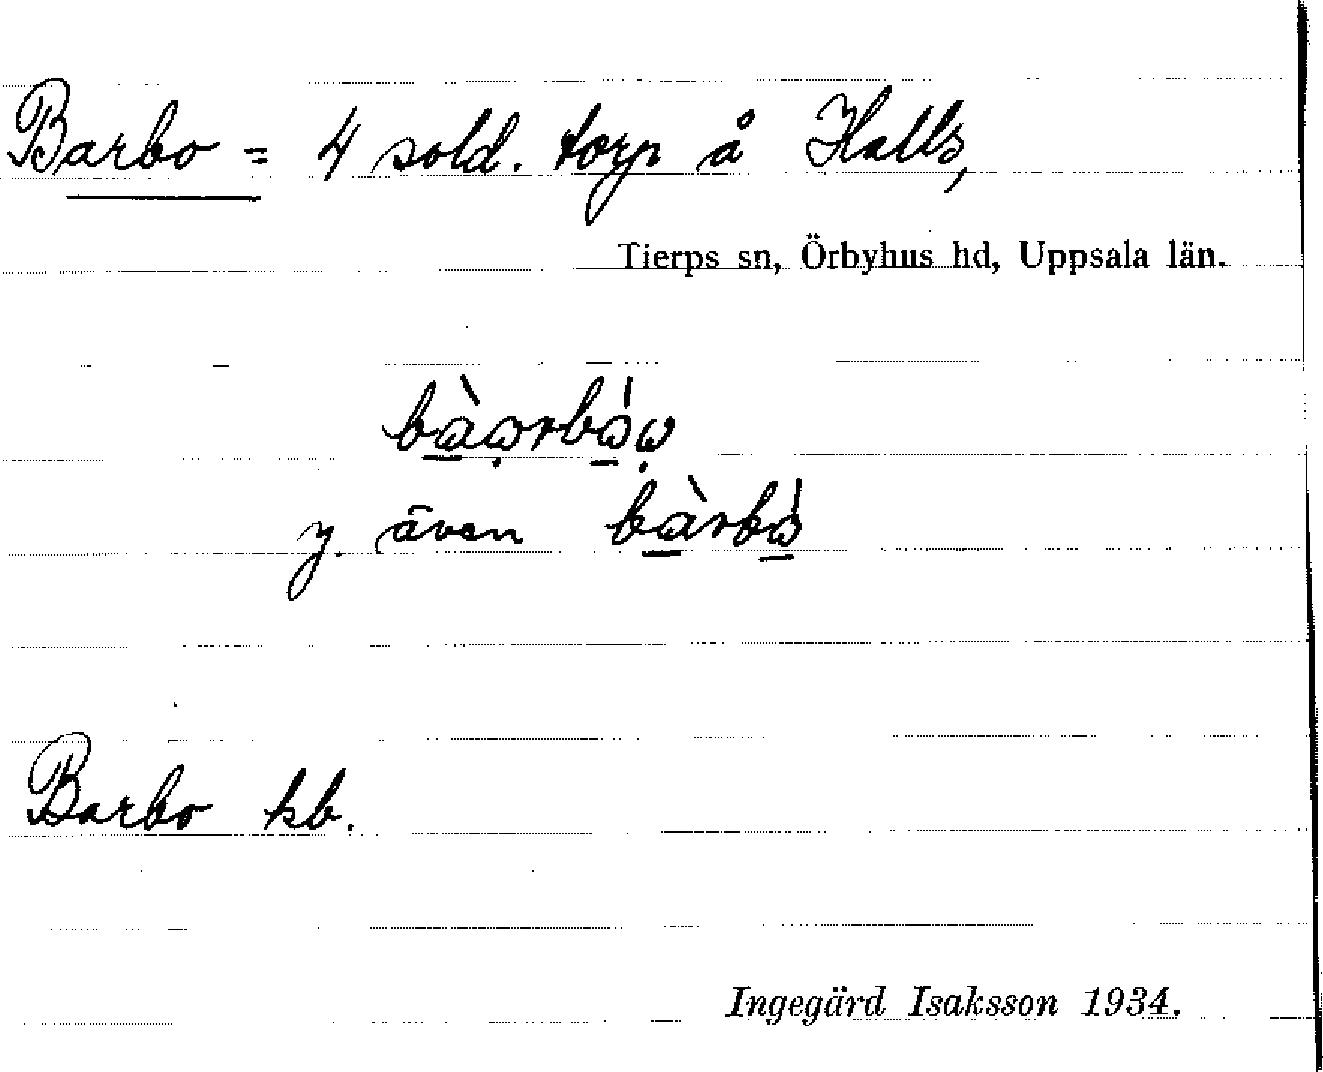 Barbo = 4 sold. torp å Halls,
Tierps sn, Örbyhus hd, Uppsala län.
y. även
Barbo kb.
Ingegärd Isaksson 1934.